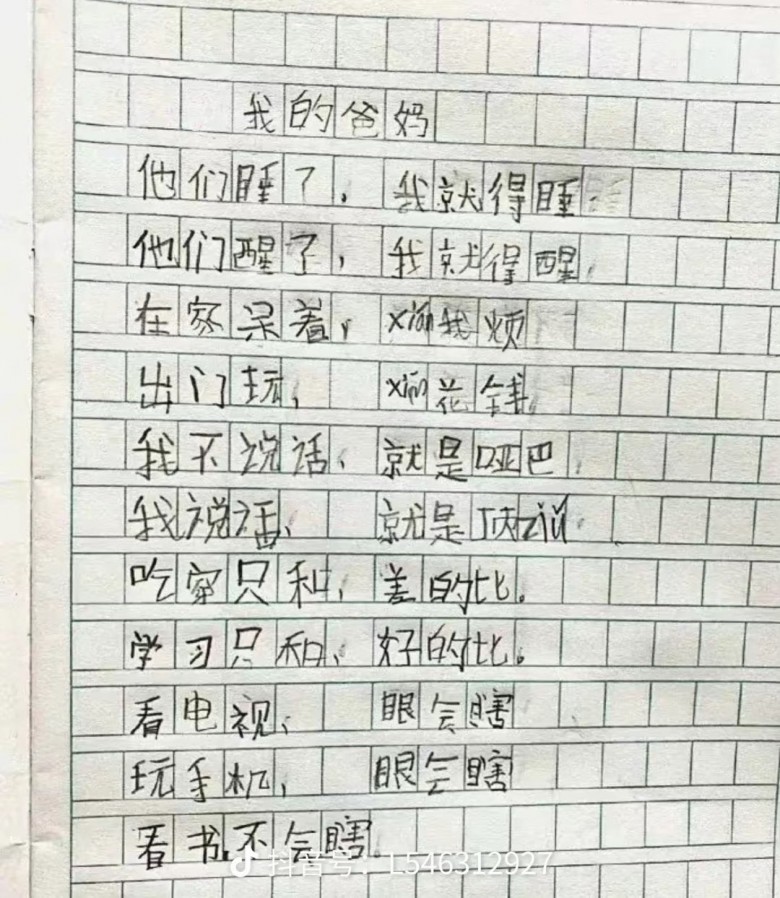 我的爸妈
他们睡了，我就得睡
他们醒了，我就得醒.
在家呆着，xián我烦
出门玩，xián花钱.
我不说话，就是哑巴.
我说话，就是顶zuǐ.
吃穿只和，差的比。
学习只和，好的比。
看电视，眼会瞎
玩手机，眼会瞎
看书不会瞎.
抖音号：L546312927